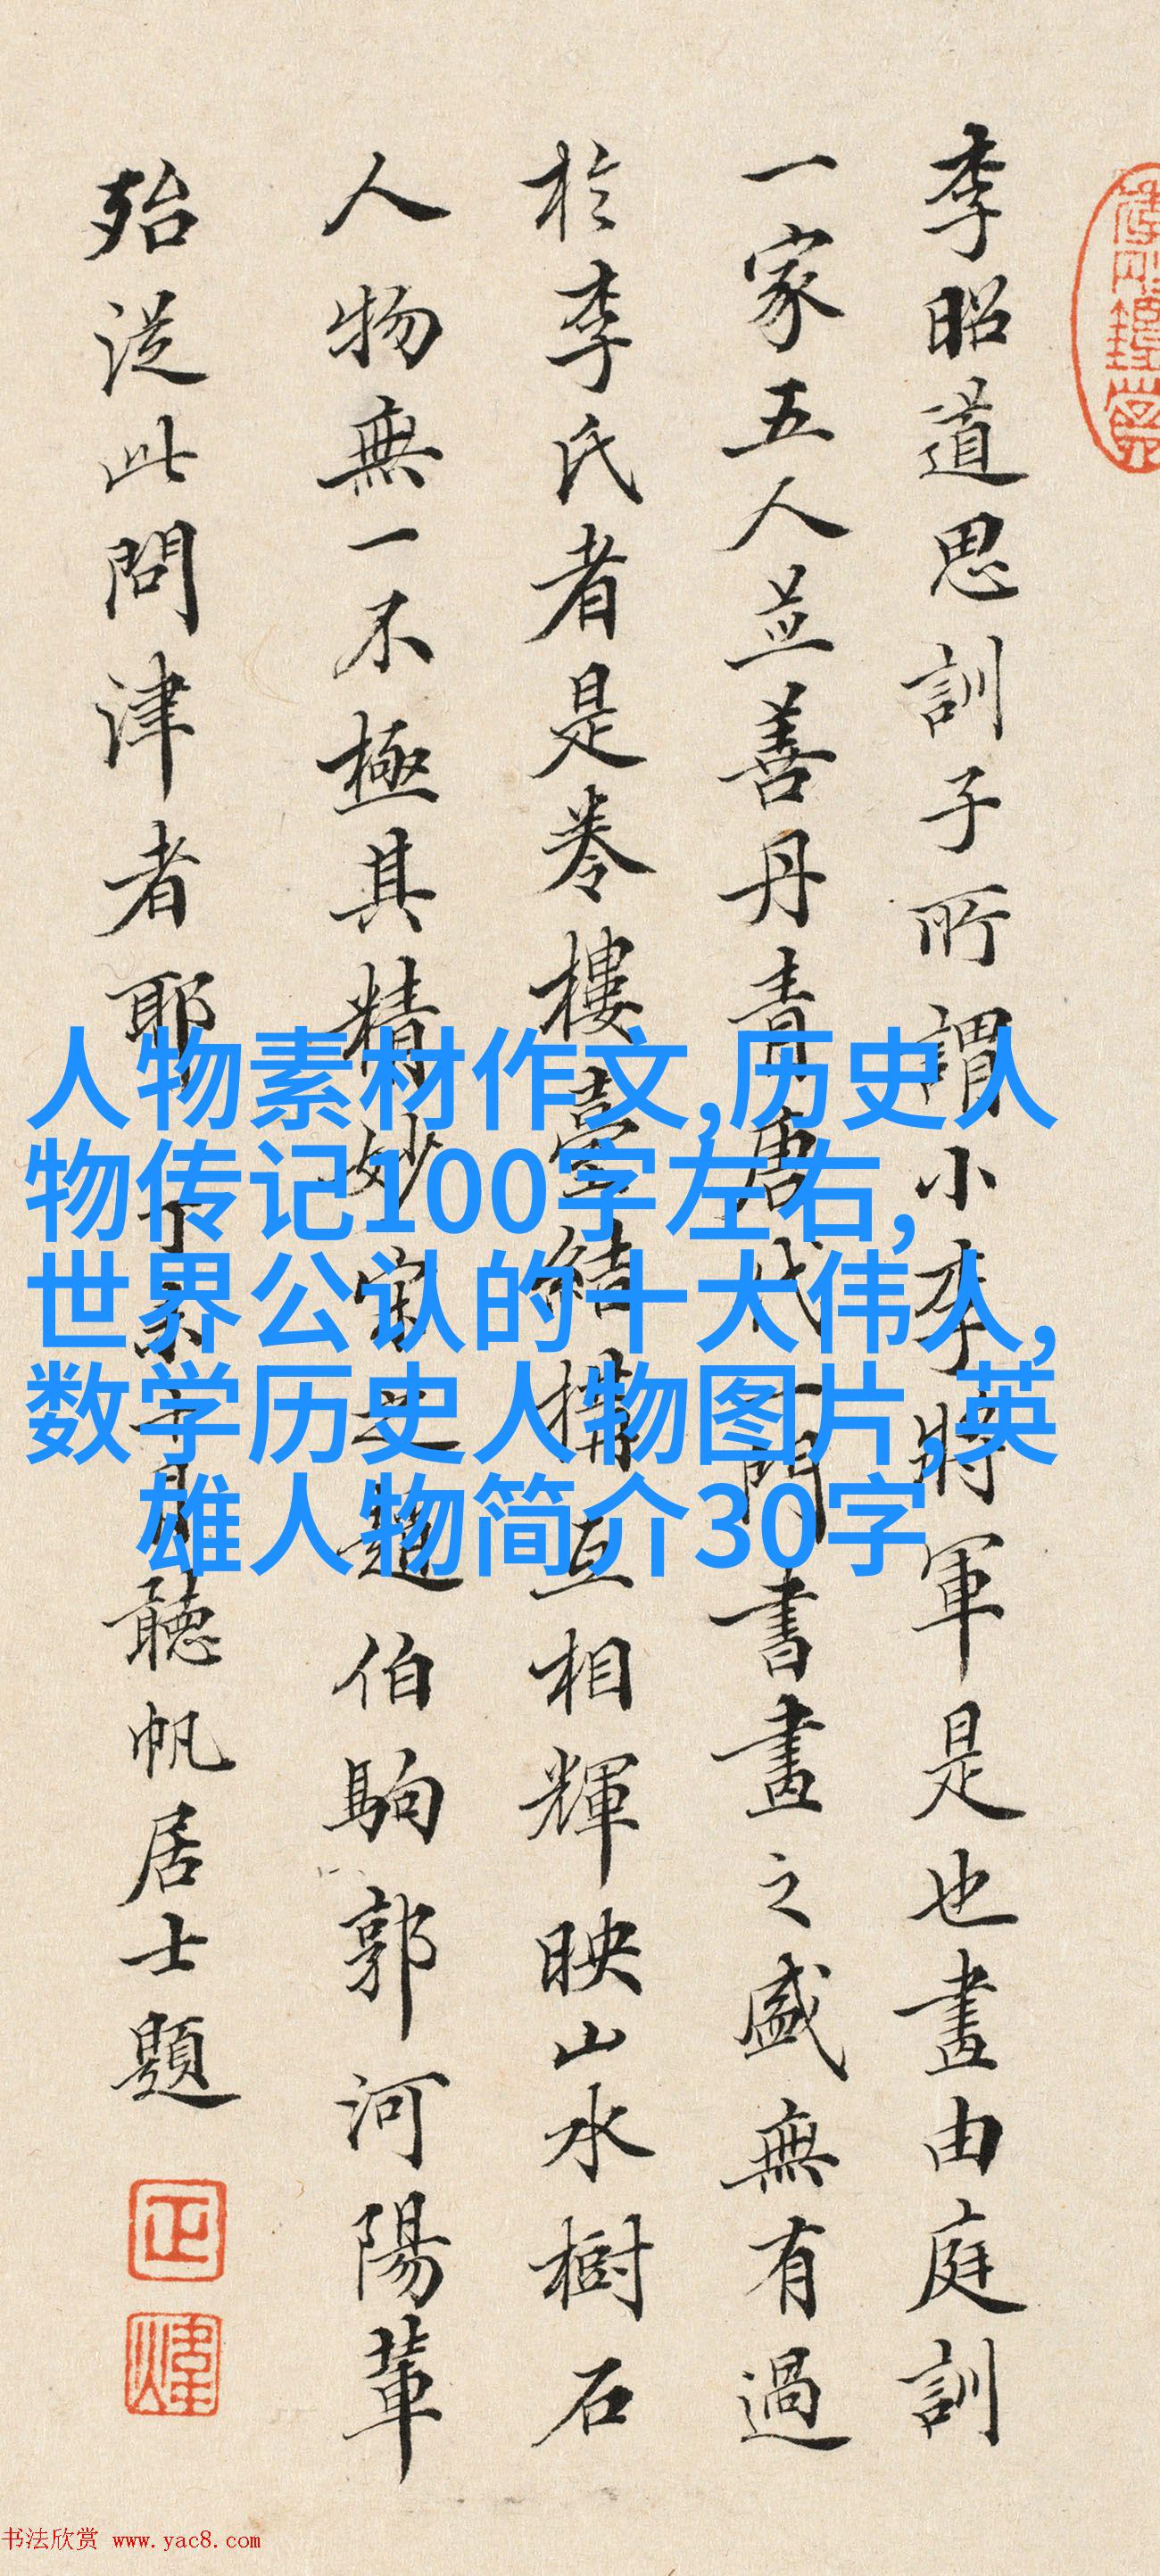 李昭道思訓子所謂小李將軍是也畫由庭訓
一家五人並善丹青唐代一門書畫之盛無有過
於李氏者是卷樓臺結構互相輝映山水樹石
人物無一不極其精妙宋之趙伯駒郭河陽輩
殆從此問津者耶
聽帆居士題
人物素材作文,历史人
物传记100字左右,
世界公认的十大伟人,
数学历史人物图片,英
雄人物简介30字
书法欣赏 www.yac8.com